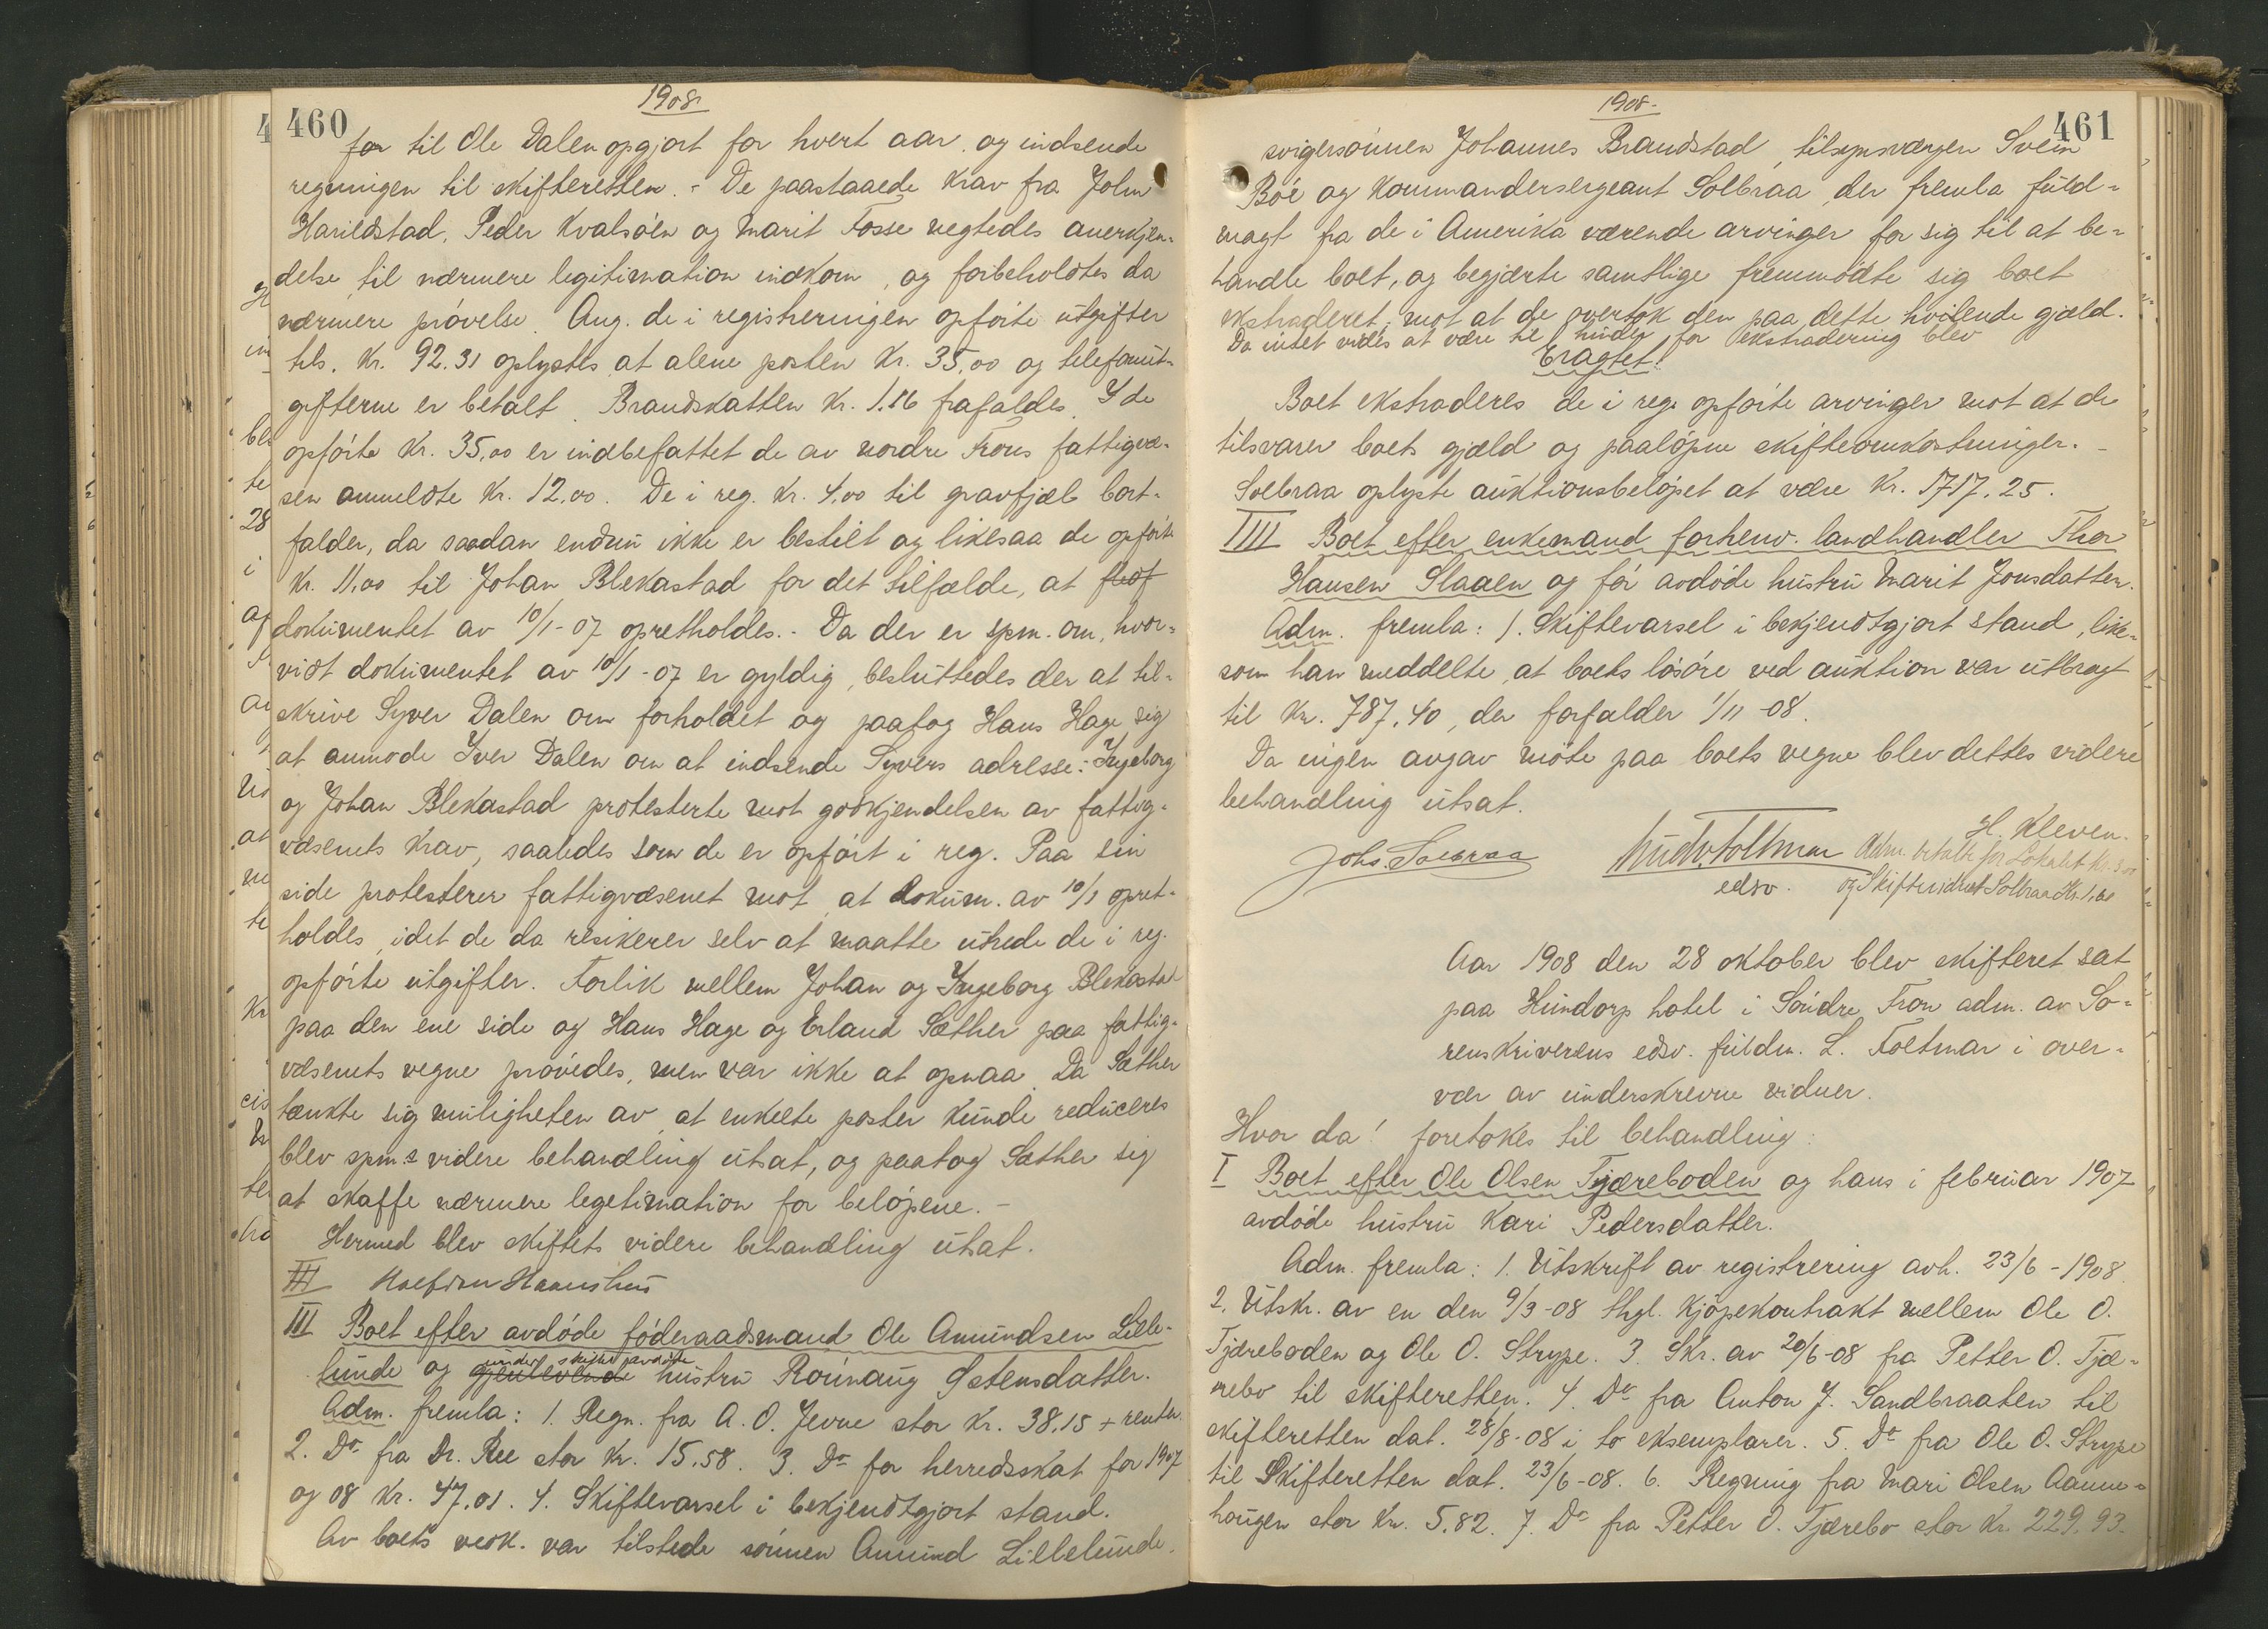 460
1908
for til Ole Dalen opgjort for hvert aar og indsende
regningen til skifteretten. - De paastaaede krav fra John
Harildstad, Peder Kvalsöen og Marit Fosse negtedes anerkjen-
delse til nærmere legitimation indkom, og forbeholdtes da
nærmere prövelse. Ang. de i registreringen opförte utgifter
tils. Kr. 92.31 oplystes at alene posten Kr. 35,00 og telefonut-
gifterne er betalt. Brandskatten Kr. 1.86 frafaldes. I de
opförte Kr. 35,00 er indbefattet de av nordre Frons fattigvæ-
sen anmeldte Kr. 12.00. De i reg. Kr. 4,00 til gravfjæl bort-
falder, da saadan endnu ikke er bestilt og likesaa de opförte
Kr. 11,00 til Johan Blekastad for det tilfælde, at
dokumentet av 10/1-07 opretholdes. - Da der er spm. om, hvor-
vidt dokumentet av 10/1-07 er gyldig, besluttedes der at til-
skrive Syver Dalen om forholdet og paatog Hans Hage sig
at anmode Iver Dalen om at indsende Syvers adresse. Ingeborg
og Johan Blekastad protesterte mot godkjendelsen av fattig-
væsenets krav, saaledes som de er opfört i reg. Paa sin
side protesterer fattigvæsenet mot, at dokum. av 10/1 opret-
holdes, idet de da resikerer selv at maatte utrede de i reg.
opförte utgifter. Forlik mellem Johan og Ingeborg Blekastad
paa den ene side og Hans Hage og Erland Sæther paa fattig-
væsenets vegne prövedes, men var ikke at opnaa. Da Sæther
tænkte sig muligheten av, at enkelte poster kunde reduceres
blev spm:s videre behandling utsat, og paatog Sæther sig
at skaffe nærmere legetimation for belöpene. -
Hermed blev skiftets videre behandling utsat.
III
III Boet efter avdöde föderaadsmand Ole Amundsen Lille-
under skiftet avdöde
lunde og gjenlevende hustru Rönnaug Östensdatter.
Adm. fremla: 1. Regn. fra A. O. Jevne stor Kr. 38.15 + renter.
2. Do fra Dr. Ree stor Kr. 15.58. 3. Do for herredsskat for 1907
og 08 Kr. 47.01. 4. Skiftevarsel i bekjendtgjort stand.
Av boets vedk. var tilstede sönnen Amund Lillelunde.
461
1908-
svigersönnen Johannes Brandstad, tilsynsvergen Svein
Böe og kommandersergeant Solbraa, der fremla fuld-
magt fra de i Amerika værende arvinger for sig til at be-
handle boet, og begjærte samtlige fremmödte sig boet
ekstraderet mot at de overtok den paa dette hvilende gjæld.
Da intet vides at være til hinder for ekstradering blev
Eragtet!
Boet ekstraderes de i reg. opförte arvinger mot at de
tilsvarer boets gjæld og paalöpne skifteomkostninger. -
Solbraa oplyste auktionsbelöpet at være Kr. 1717.25.
IIII Boet efter enkemand forhenv. landhandler Thor
Hansen Slaaen og för avdöde hustru Marit Jonsdatter.
Adm. fremla: 1. Skiftevarsel i bekjendtgjort stand, like-
som han meddelte, at boets lösöre ved auktion var utbragt
til Kr. 787,40, der forfalder 1/11-08.
Da ingen avgav möte paa boets vegne blev dettes videre
behandling utsat.
Johs. Solbraa
Ludv. Foltmar
edsv.
H. Kleven.
Adm. betalte for Lokalet Kr. 3.00
og Skiftevidnet Solbraa Kr. 1,60
Aar 1908 den 28 oktober blev skifteret sat
paa Hundorp hotel i Söndre Fron adm. av So-
renskriverens edsv. fuldm. L. Foltmar i over-
vær av underskrevne vidner.
Hvor da! foretokes til behandling:
I Boet efter Ole Olsen Tjæreboden og hans i februar 1907
avdöde hustru Kari Pedersdatter.
Adm. fremla: 1. Utskrift av registrering avh. 23/6-1908.
2. Utskr. av en den 9/3-08 thgl. kjöpekontrakt mellem Ole O.
Tjæreboden og Ole O. Strype. 3. Skr. av 20/6-08 fra Petter O. Tjæ-
rebo til skifteretten. 4. Do fra Anton J. Sandbraaten til
skifteretten dat. 28/8-08 i to eksemplarer. 5. Do fra Ole O. Strype
til Skifteretten dat. 23/6-08. 6. Regning fra Mari Olsen Aanne-
haugen stor Kr. 5.82. 7. Do fra Petter O. Tjærebo stor Kr. 229.93.